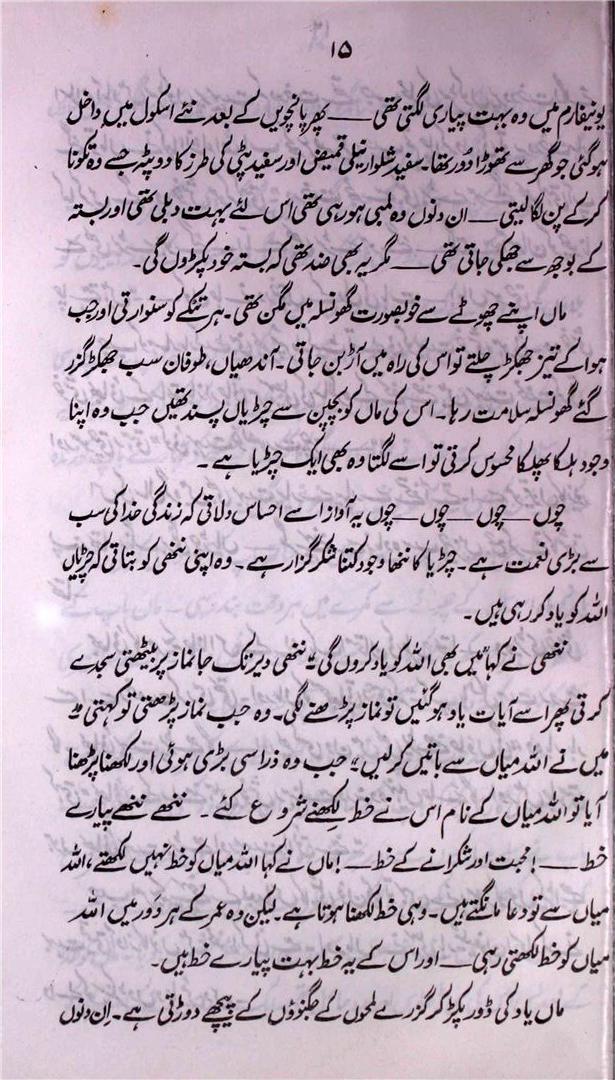 ۱۵
یونیفارم میں وہ بہت پیاری لگتی تھی ــــ پھر پانچویں کے بعد نئے اسکول میں داخل
ہو گئی جو گھر سے تھوڑا دُور تھا۔ سفید شلوار نیلی قمیض اور سفید پٹی کی طرز کا دوپٹہ جسے وہ تکونا
کر کے پن لگا لیتی ــــ ان دنوں وہ لمبی ہو رہی تھی اس لئے بہت دبلی تھی اور بستہ
کے بوجھ سے جھکی جاتی تھی ــــ مگر یہ بھی ضد تھی کہ بستہ خود پکڑوں گی۔
ماں اپنے چھوٹے سے خوبصورت گھونسلہ میں مگن تھی۔ ہر تنکے کو سنوارتی اور جب
ہوا کے تیز جھکڑ چلتے تو اس کی راہ میں آڑ بن جاتی۔ آندھیاں، طوفان سب جھکڑ گزر
گئے گھونسلہ سلامت رہا۔ اس کی ماں کو بچپن سے چڑیاں پسند تھیں جب وہ اپنا
وجود ہلکا پھلکا محسوس کرتی تو اسے لگتا وہ بھی ایک چڑیا ہے۔
چوں ــــ چوں ــــ چوں ــــ چوں یہ آواز اسے احساس دلاتی کہ زندگی خدا کی سب
سے بڑی نعمت ہے۔ چڑیا کا ننھا وجود کتنا شکر گزار ہے۔ وہ اپنی ننھی کو بتاتی کہ چڑیاں
اللہ کو یاد کر رہی ہیں۔
ننھی نے کہا "میں بھی اللہ کو یاد کروں گی" ننھی دیر تک جا نماز پر بیٹھتی سجدے
کرتی پھر اسے آیات یاد ہو گئیں تو نماز پڑھنے لگی۔ وہ جب نماز پڑھتی تو کہتی "
میں نے اللہ میاں سے باتیں کر لیں" جب وہ ذرا سی بڑی ہوئی اور لکھنا پڑھنا
آیا تو اللہ میاں کے نام اس نے خط لکھنے شروع کئے۔ ننھے ننھے پیارے
خط ــــ! محبت اور شکرانے کے خط ــــ! ماں نے کہا اللہ میاں کو خط نہیں لکھتے، اللہ
میاں سے تو دعا مانگتے ہیں۔ وہی خط لکھنا ہوتا ہے۔ لیکن وہ عمر کے ہر دَور میں اللہ
میاں کو خط لکھتی رہی ــــ اور اس کے یہ خط بہت پیارے خط ہیں۔
ماں یاد کی ڈور پکڑ کر گزرے لمحوں کے جگنوؤں کے پیچھے دوڑتی ہے۔ اِن دنوں